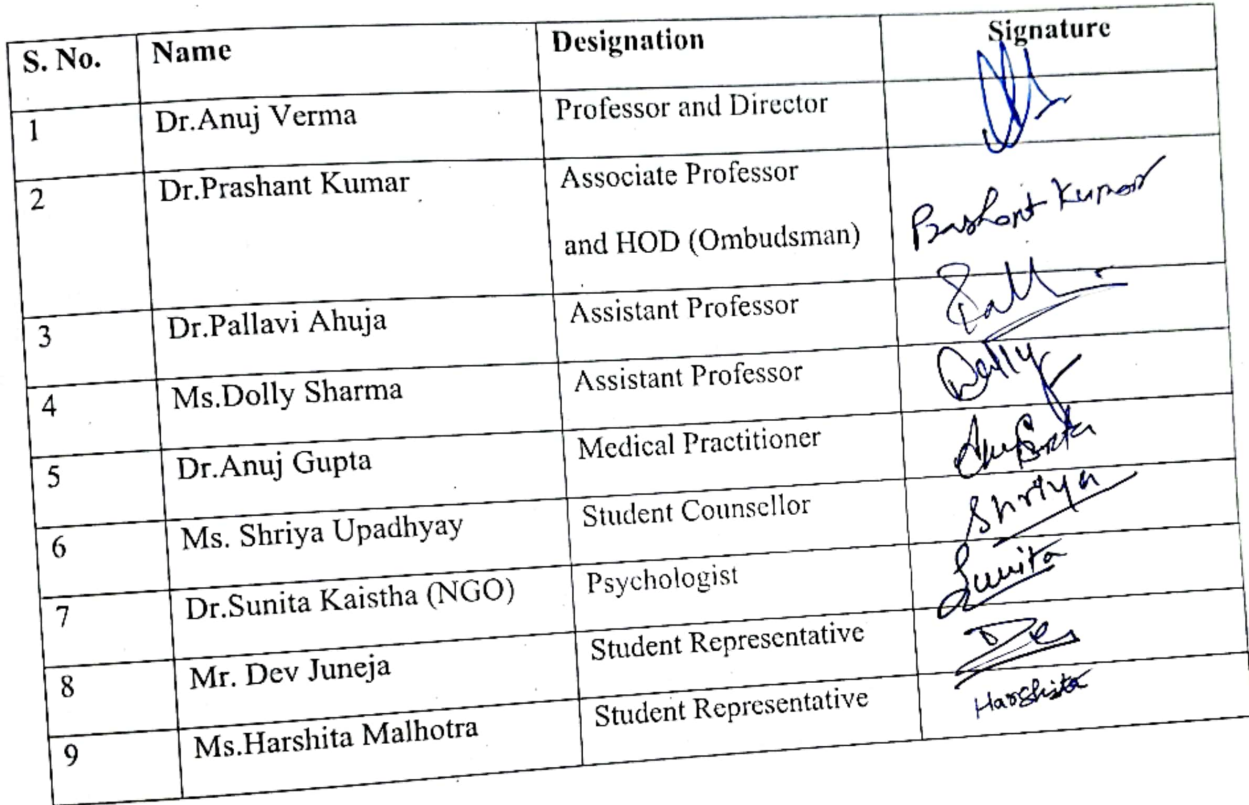 S. No. Name Designation Signature
1 Dr.Anuj Verma Professor and Director
2 Dr.Prashant Kumar Associate Professor
and HOD (Ombudsman) Prashant Kumar
3 Dr.Pallavi Ahuja Assistant Professor
4 Ms.Dolly Sharma Assistant Professor Dolly
5 Dr.Anuj Gupta Medical Practitioner
6 Ms. Shriya Upadhyay Student Counsellor Shriya
7 Dr.Sunita Kaistha (NGO) Psychologist Sunita
8 Mr. Dev Juneja Student Representative Dev
9 Ms.Harshita Malhotra Student Representative Harshita